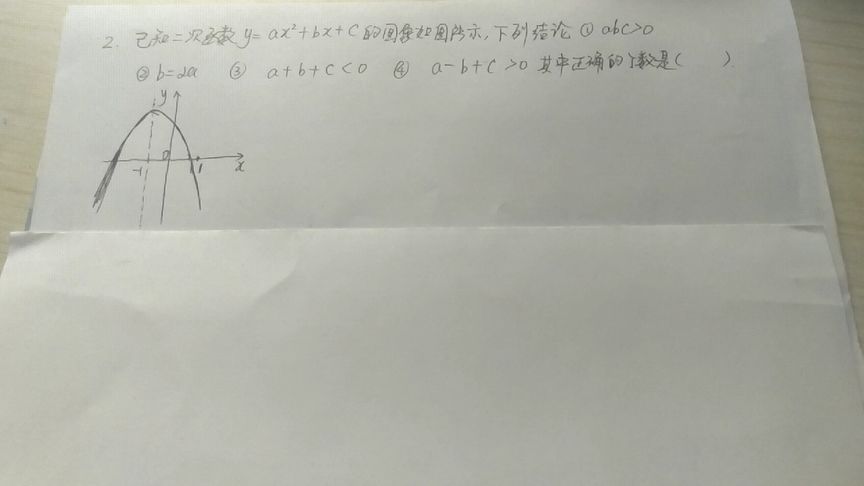 2. 已知二次函数 y= ax²+bx+c 的图像如图所示,下列结论 ① abc>0
② b=2a ③ a+b+c<0 ④ a-b+c>0 其中正确的个数是( ).
y
-1 0 1 x